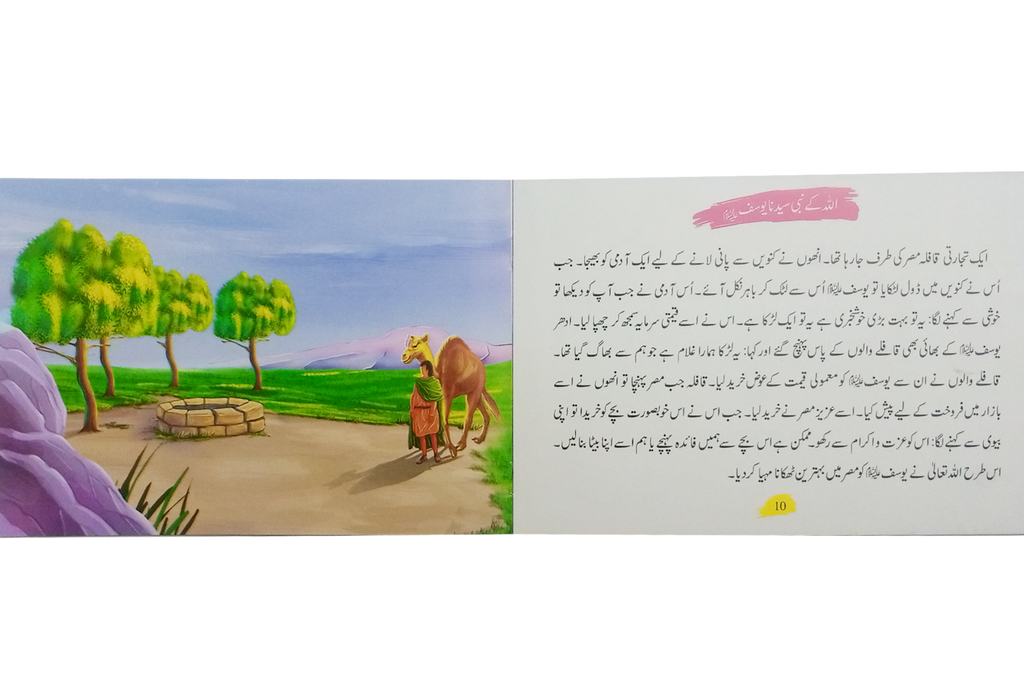 اللہ کے نبی سیدنا یوسف علیہ السلام
ایک تجارتی قافلہ مصر کی طرف جا رہا تھا۔ انھوں نے کنویں سے پانی لانے کے لیے ایک آدمی کو بھیجا۔ جب
اُس نے کنویں میں ڈول لٹکایا تو یوسف علیہ السلام اُس سے لٹک کر باہر نکل آئے۔ اُس آدمی نے جب آپ کو دیکھا تو
خوشی سے کہنے لگا: یہ تو بہت بڑی خوشخبری ہے یہ تو ایک لڑکا ہے۔ اس نے اسے قیمتی سرمایہ سمجھ کر چھپا لیا۔ ادھر
یوسف علیہ السلام کے بھائی بھی قافلے والوں کے پاس پہنچ گئے اور کہا: یہ لڑکا ہمارا غلام ہے جو ہم سے بھاگ گیا تھا۔
قافلے والوں نے ان سے یوسف علیہ السلام کو معمولی قیمت کے عوض خرید لیا۔ قافلہ جب مصر پہنچا تو انھوں نے اسے
بازار میں فروخت کے لیے پیش کیا۔ اسے عزیز مصر نے خرید لیا۔ جب اس نے اس خوبصورت بچے کو خریدا تو اپنی
بیوی سے کہنے لگا: اس کو عزت و اکرام سے رکھو۔ ممکن ہے اس بچے سے ہمیں فائدہ پہنچے یا ہم اسے اپنا بیٹا بنا لیں۔
اس طرح اللہ تعالیٰ نے یوسف علیہ السلام کو مصر میں بہترین ٹھکانا مہیا کر دیا۔
10